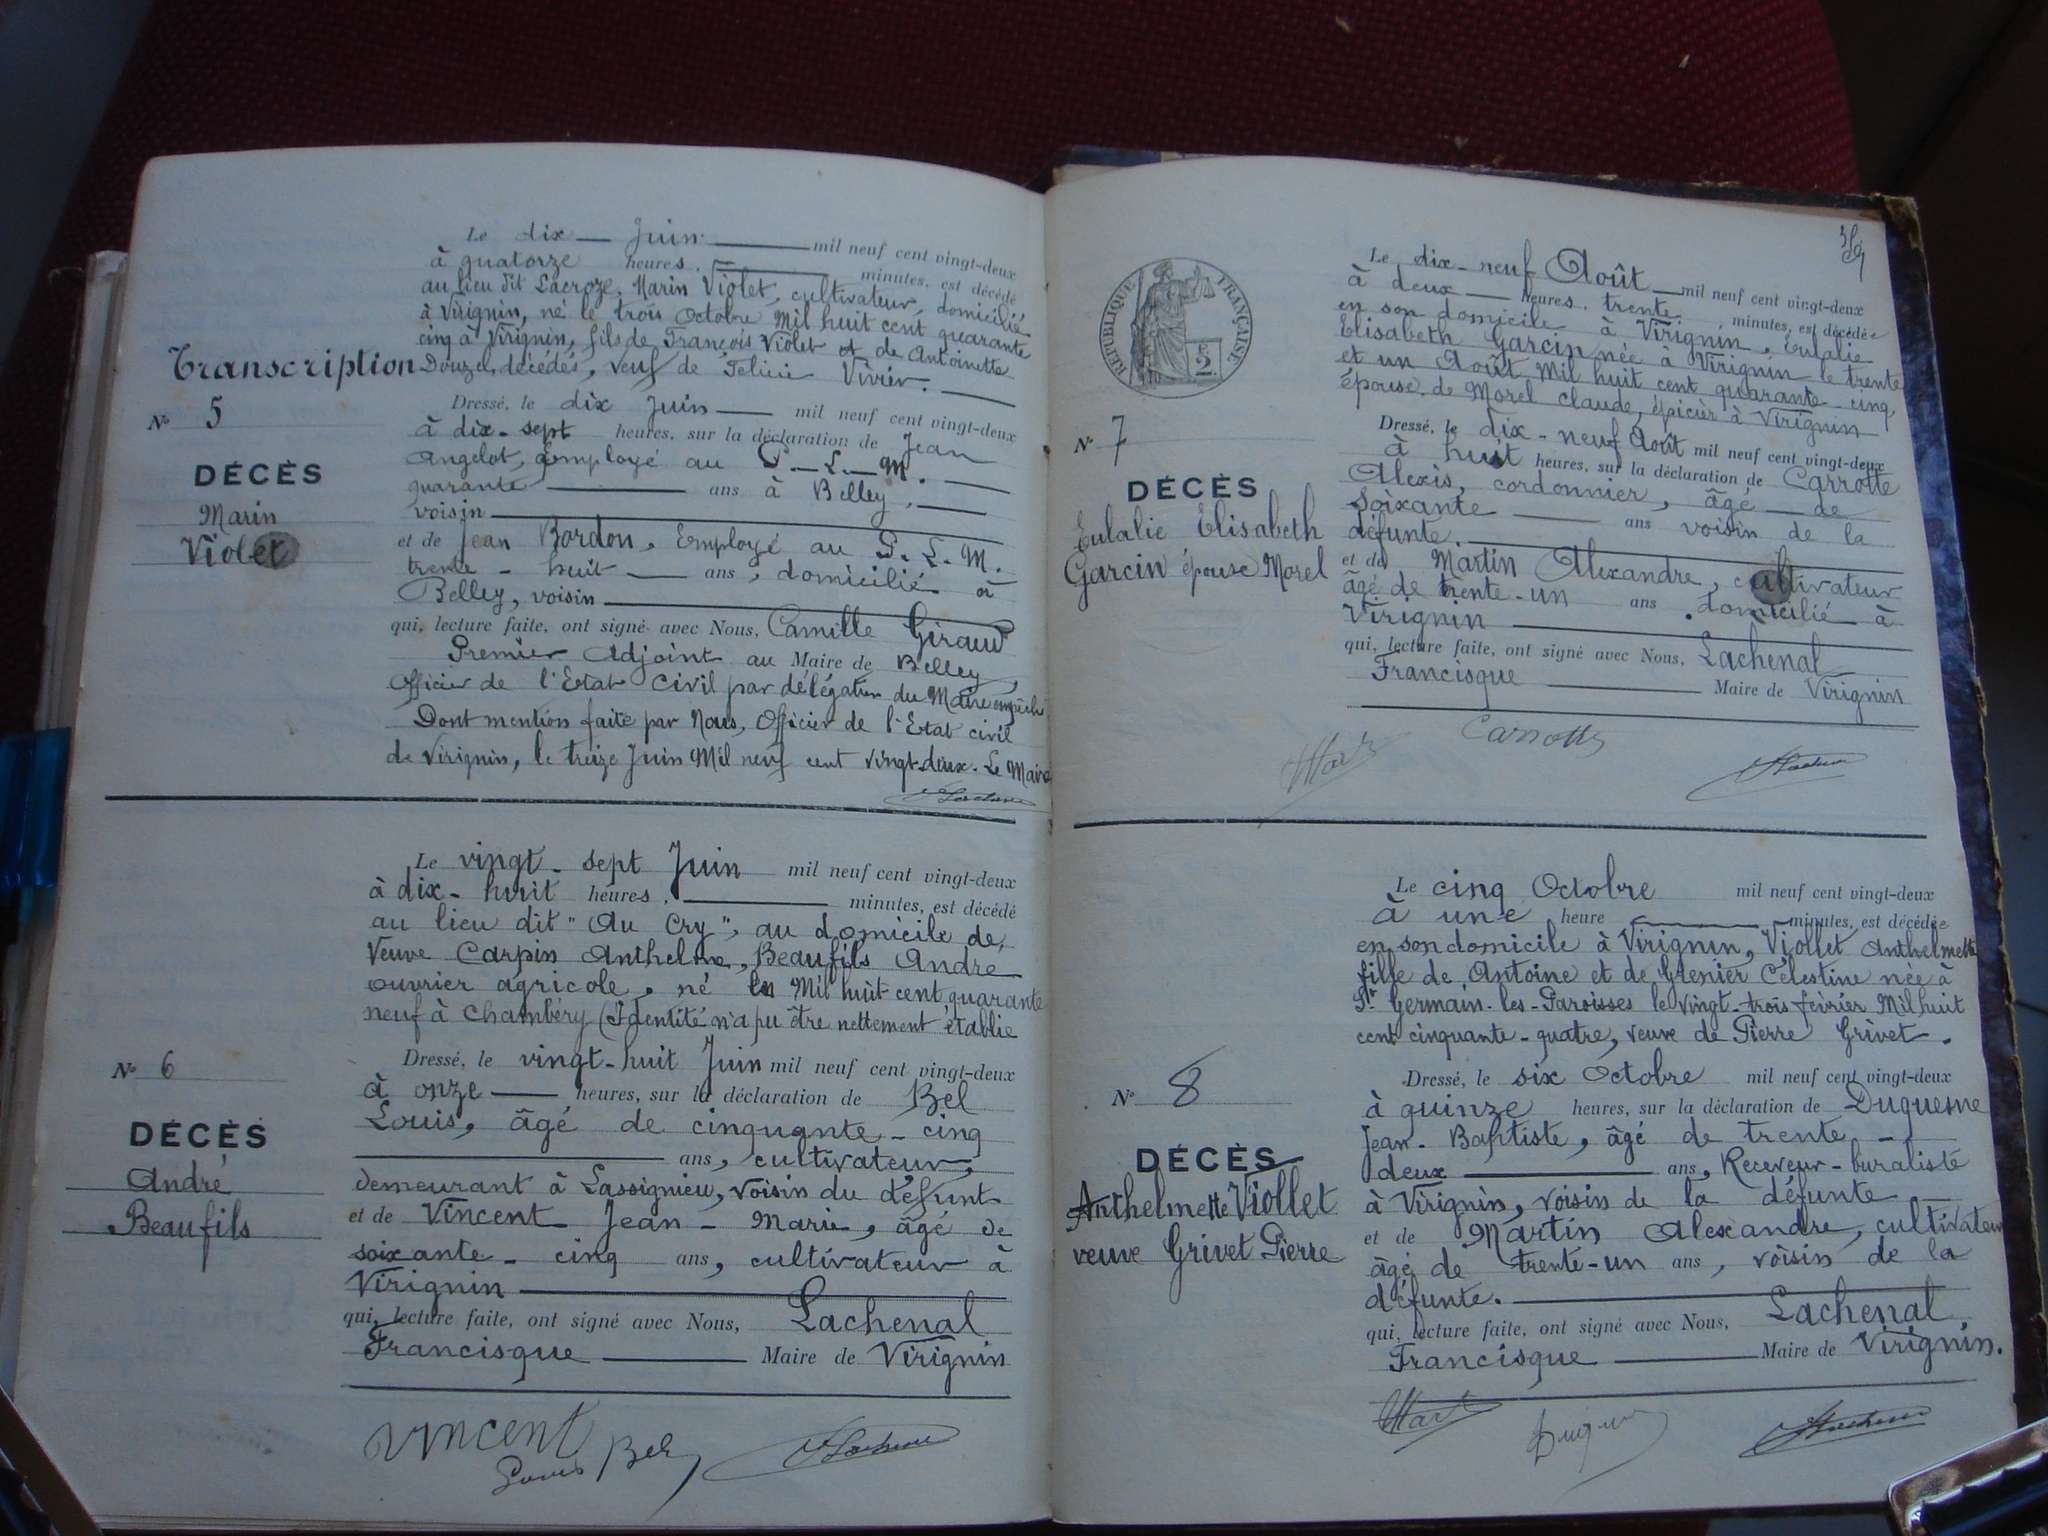 Le dix Juin mil neuf cent vingt-deux
à quatorze heures. minutes, est décédé
au lieu dit Lacroze, Marin Violet, cultivateur, domicilié
à Virignin, né le trois Octobre Mil huit cent quarante
cinq à Virignin, fils de François Violet et de Antoinette
Douzel, décédés, veuf de Félicie Vivier.
Transcription
N° 5
DÉCÈS
Marin
Violet
Dressé, le dix Juin mil neuf cent vingt-deux
à dix-sept heures, sur la déclaration de Jean
Angelot, employé au P.-L.-M.
quarante ans à Belley,
voisin
et de Jean Bordon, Employé au P. L. M.
trente-huit ans, domicilié à
Belley, voisin
qui, lecture faite, ont signé avec Nous, Camille Giraud
Premier Adjoint au Maire de Belley,
Officier de l'Etat Civil par délégation du Maire empêché
Dont mention faite par Nous, Officier de l'Etat civil
de Virignin, le treize Juin Mil neuf cent vingt-deux. Le Maire
Le vingt-sept Juin mil neuf cent vingt-deux
à dix-huit heures. minutes, est décédé
au lieu dit "Au Cry", au domicile de
Veuve Carpin Anthelme, Beaufils André
ouvrier agricole, né en Mil huit cent quarante
neuf à Chambéry (Identité n'a pu être nettement établie
N° 6
DÉCÈS
André
Beaufils
Dressé, le vingt-huit Juin mil neuf cent vingt-deux
à onze heures, sur la déclaration de Bel
Louis, âgé de cinquante-cinq
ans, cultivateur,
demeurant à Lassignieu, voisin du défunt
et de Vincent Jean-Marie, âgé de
soixante-cinq ans, cultivateur à
Virignin
qui, lecture faite, ont signé avec Nous, Lachenal
Francisque Maire de Virignin
Vincent
Louis Bel
39
RÉPUBLIQUE FRANÇAISE
2
Le dix-neuf Août mil neuf cent vingt-deux
à deux heures, trente minutes, est décédée
en son domicile à Virignin, Eulalie
Elisabeth Garcin née à Virignin le trente
et un Août Mil huit cent quarante cinq,
épouse de Morel Claude, épicier à Virignin
N° 7
DÉCÈS
Eulalie Elisabeth
Garcin épouse Morel
Dressé, le dix-neuf Août mil neuf cent vingt-deux
à huit heures, sur la déclaration de Carrotte
Alexis, cordonnier, âgé de
soixante ans voisin de la
défunte.
et de Martin Alexandre, cultivateur
âgé de trente-un ans. domicilié à
Virignin
qui, lecture faite, ont signé avec Nous, Lachenal
Francisque Maire de Virignin
Le cinq Octobre mil neuf cent vingt-deux
à une heure minutes, est décédée
en son domicile à Virignin, Viollet Anthelmette
fille de Antoine et de Grenier Célestine née à
St Germain-les-Paroisses le vingt-trois février Mil huit
cent cinquante-quatre, veuve de Pierre Grivet.
N° 8
DÉCÈS
Anthelmette Viollet
veuve Grivet Pierre
Dressé, le six Octobre mil neuf cent vingt-deux
à quinze heures, sur la déclaration de Duquesne
Jean-Baptiste, âgé de trente-
deux ans, Receveur-buraliste
à Virignin, voisin de la défunte
et de Martin Alexandre, cultivateur
âgé de trente-un ans, voisin de la
défunte.
qui, lecture faite, ont signé avec Nous, Lachenal
Francisque Maire de Virignin.